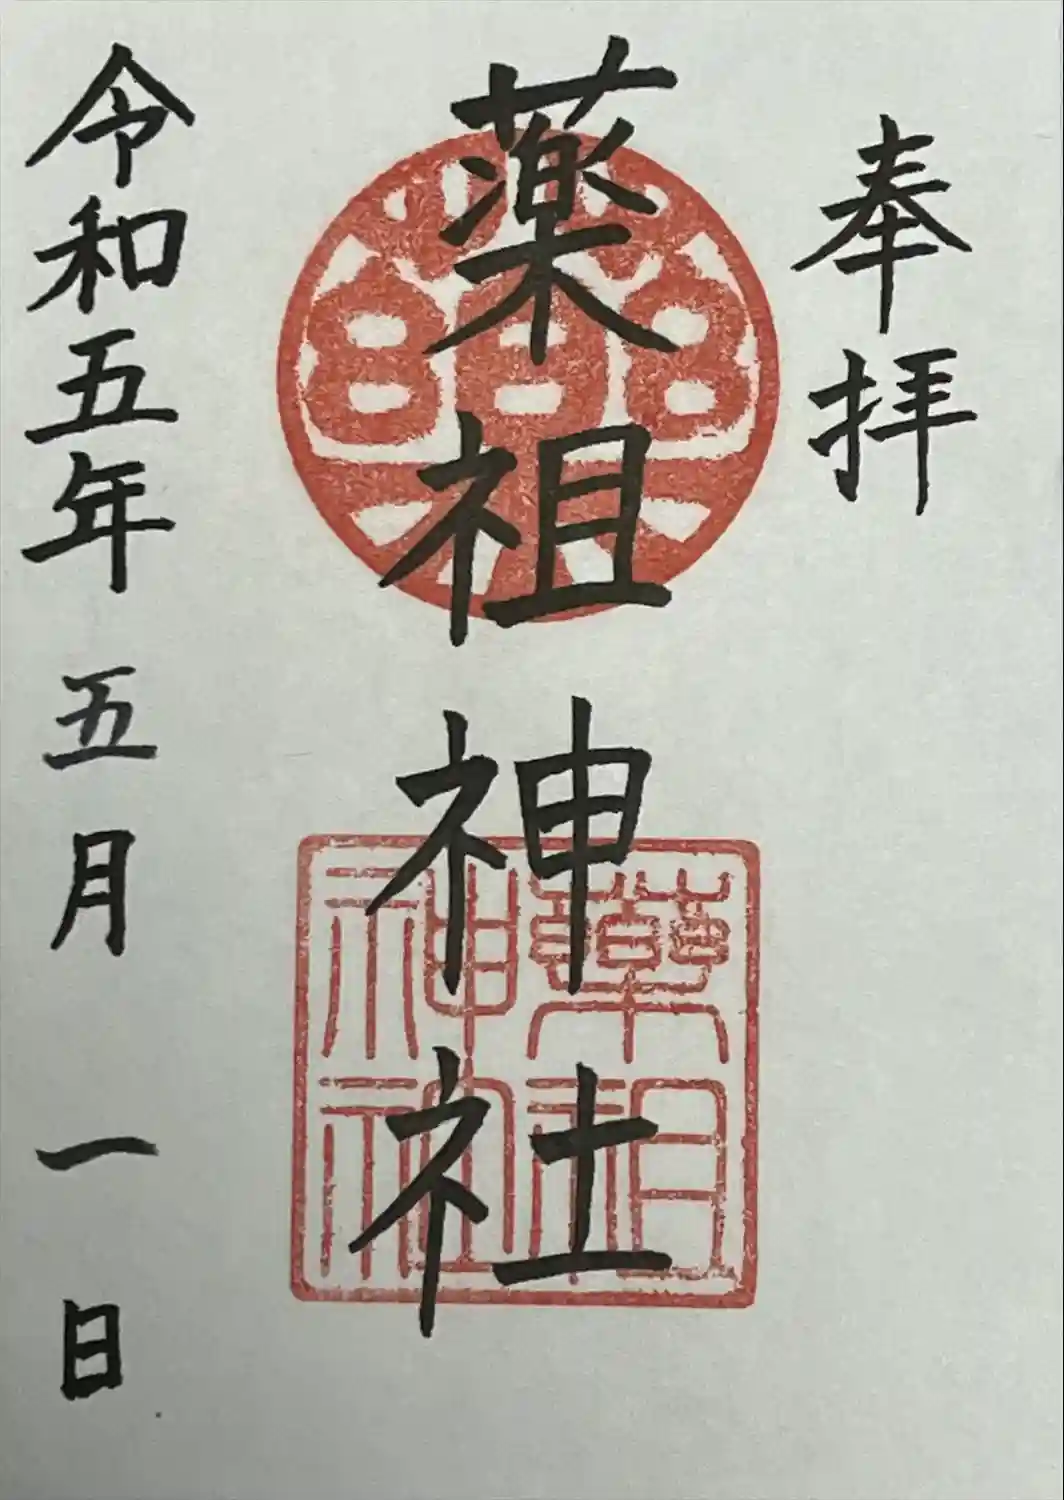 奉拝
薬祖神社
薬祖神社
令和五年五月一日